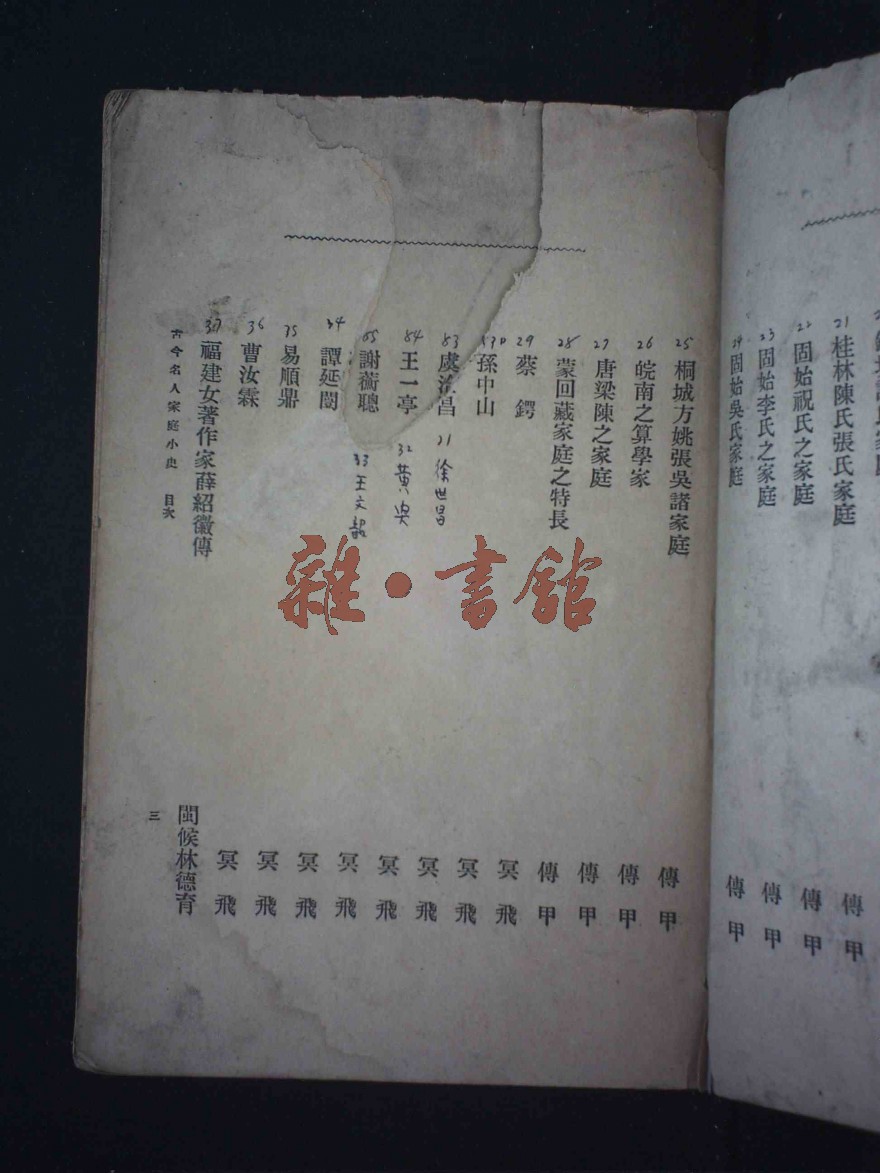 21 桂林陳氏張氏家庭 傳甲
22 固始祝氏之家庭 傳甲
23 固始李氏之家庭 傳甲
24 固始吳氏家庭 傳甲
25 桐城方姚張吳諸家庭 傳甲
26 皖南之算學家 傳甲
27 唐梁陳之家庭 傳甲
28 蒙回藏家庭之特長 傳甲
29 蔡鍔 冥飛
孫中山 冥飛
83 虞洽昌 冥飛
21 徐世昌
84 王一亭 冥飛
32 黃奐
85 謝蘅聰 冥飛
33 王文韶
34 譚延闓 冥飛
35 易順鼎 冥飛
36 曹汝霖 冥飛
37 福建女著作家薛紹徽傳 閩候林德育
古今名人家庭小史 目次 三
雜·書館